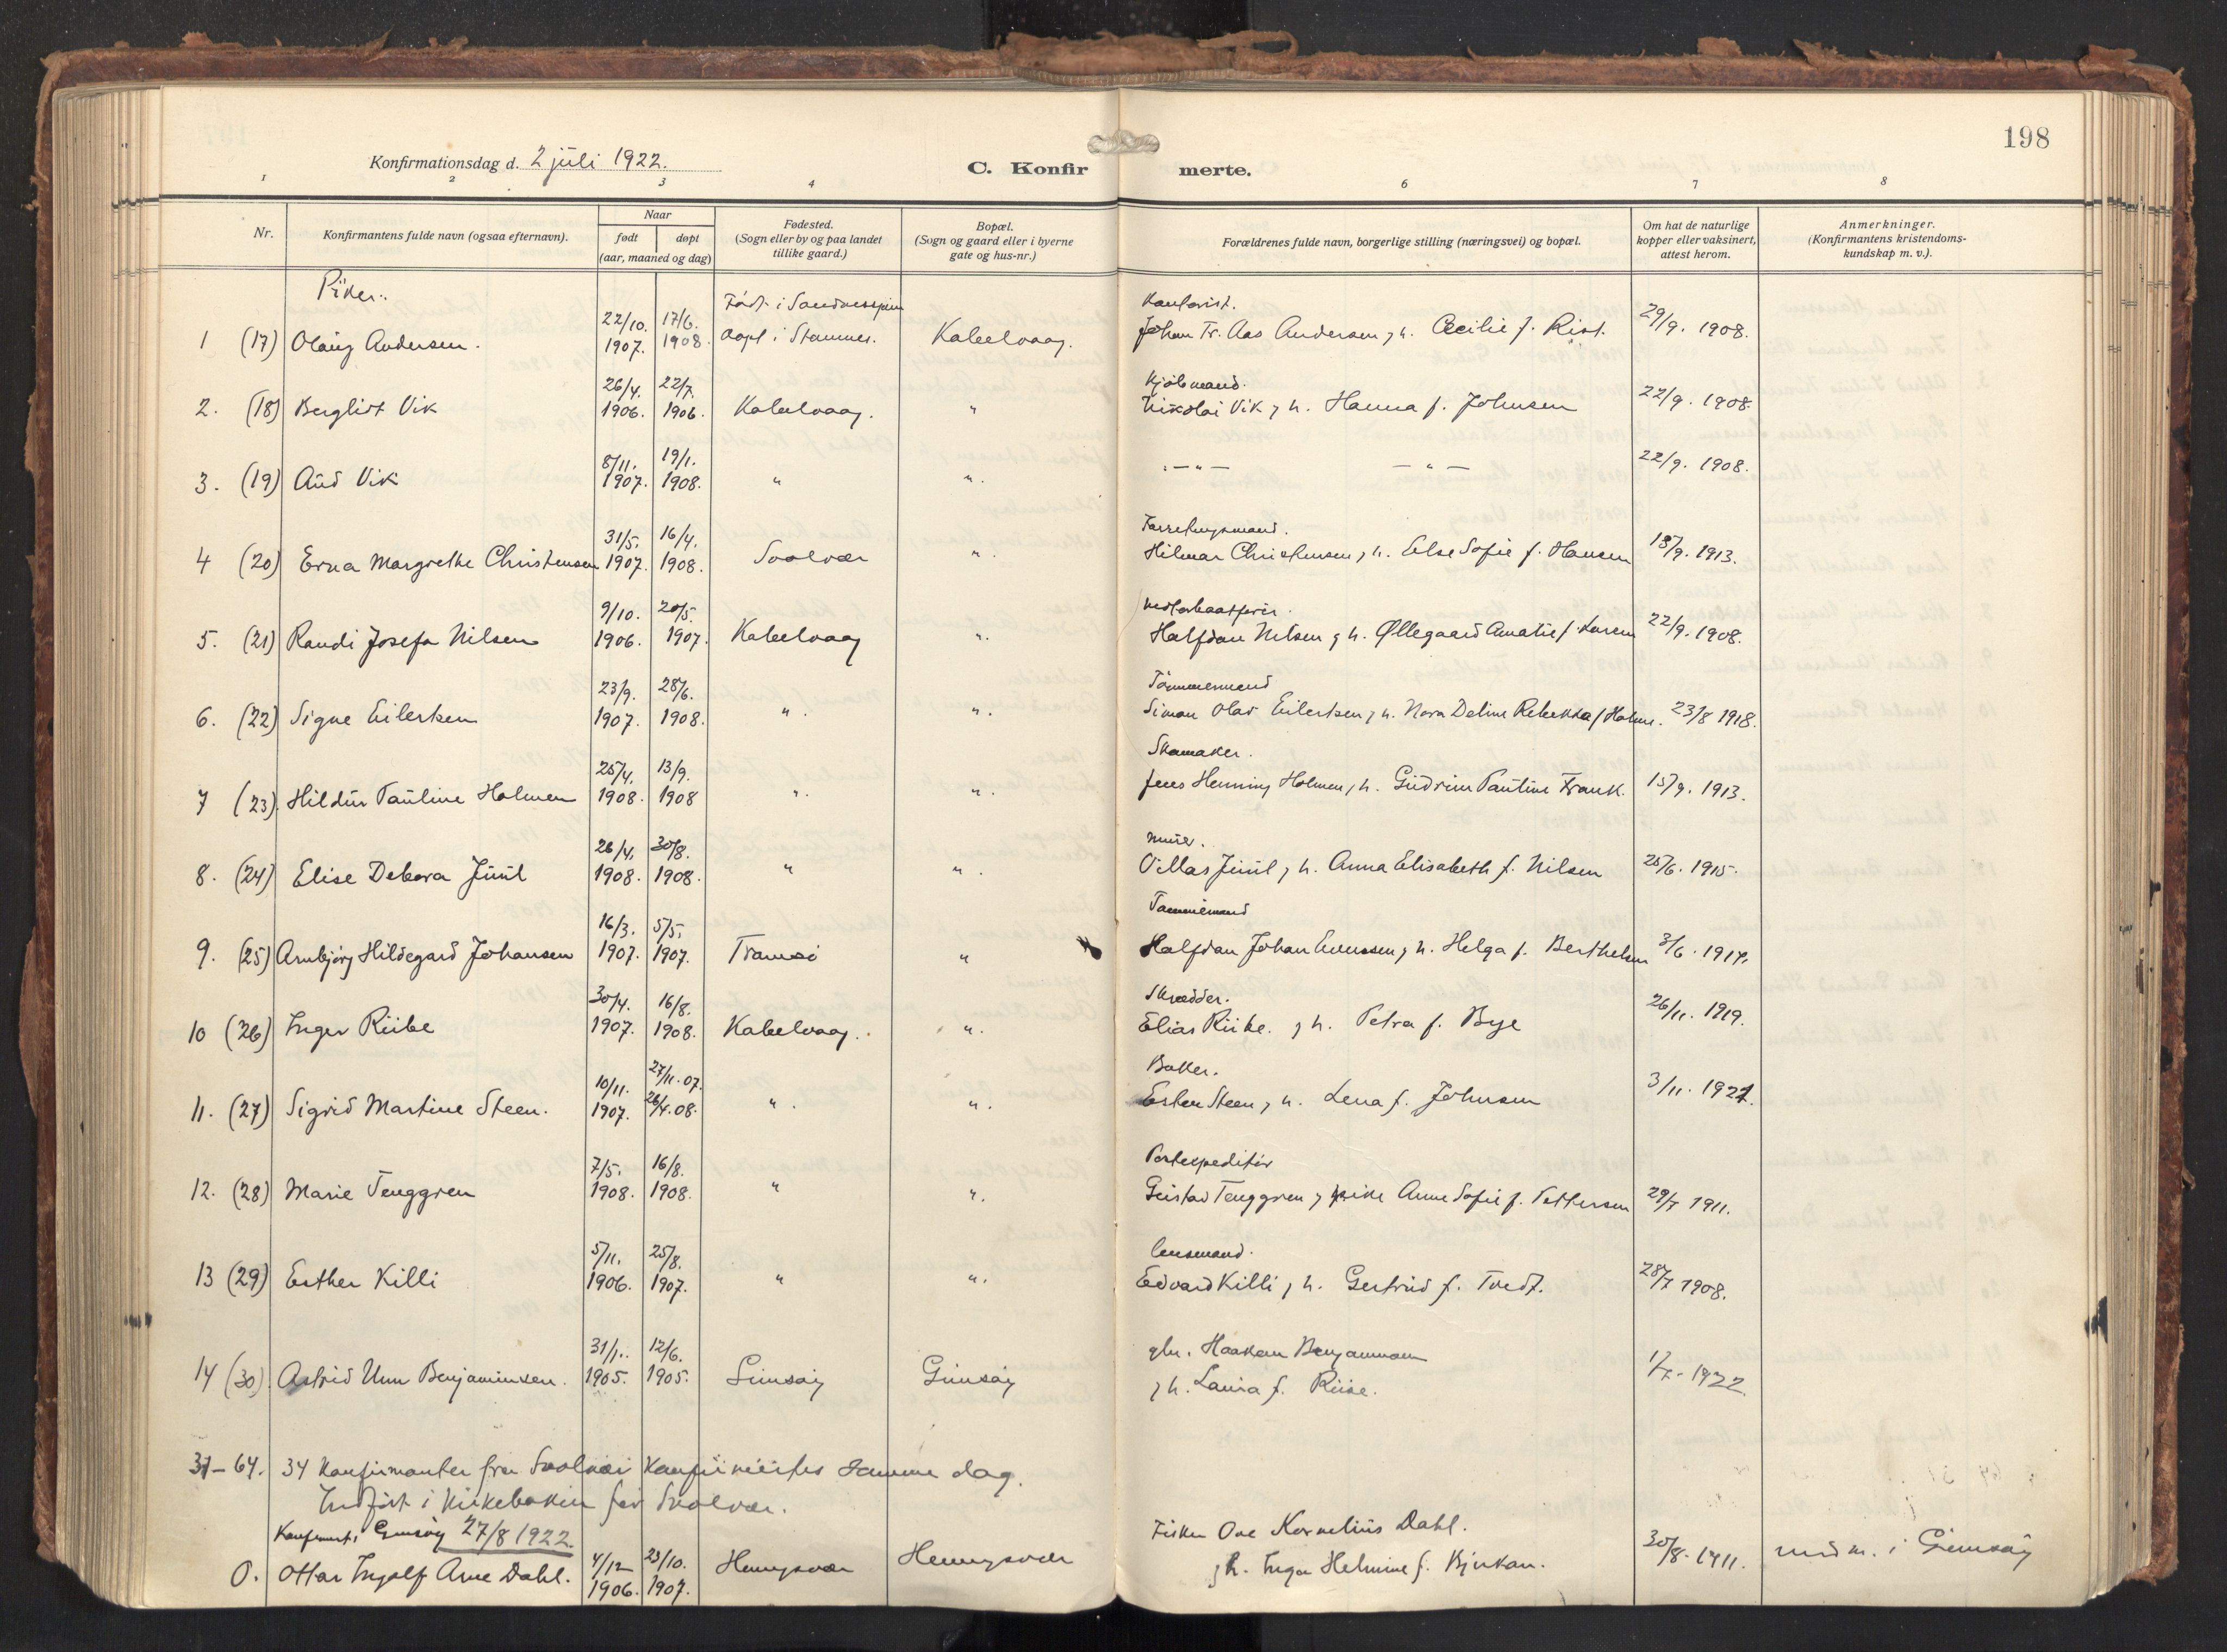 198
Konfirmationsdag d. 2 juli 1922.
C. Konfirmerte.
1 2 3 4 6 7 8
Nr. Konfirmantens fulde navn (ogsaa efternavn). Naar født døpt (aar, maaned og dag) Fødested. (Sogn eller by og paa landet tillike gaard.) Bopæl. (Sogn og gaard eller i byerne gate og hus-nr.) Forældrenes fulde navn, borgerlige stilling (næringsvei) og bopæl. Om hat de naturlige kopper eller vaksinert, attest herom. Anmerkninger. (Konfirmantens kristendoms-kundskap m. v.).
Piker.
1 (17) Olaug Andersen. 22/10. 1907. 17/6. 1908. Født i døpt i Stamnes. Kabelvaag. Johan Fr. Aas Andersen, h. Cecilie f. Rist. 29/9. 1908.
2. (18) Berglist Vik 26/4. 1906. 22/7. 1906. Kabelvaag. " Kjøbmand. Nikolai Vik, h. Hanna f. Johnsen 22/9. 1908.
3. (19) Aud Vik 8/11. 1907. 19/1. 1908. " ". — " — — " — 22/9. 1908.
4 (20) Erna Margrethe Christensen 31/5. 1907. 16/4. 1908. Svolvær ". Forretningsmand. Hilmar Christensen, h. Else Sofie f. Hansen 18/9. 1913.
5. (21) Randi Josefa Nilsen 9/10. 1906. 20/5. 1907. Kabelvaag ". Halfdan Nilsen, h. Øllegaard Amalie f. Karem 22/9. 1908.
6. (22) Signe Eilertsen 23/9. 1907. 28/6. 1908. ". ". Tømmermand Simon Olav Eilertsen, h. Nora Deline Rebekka f. 23/8 1918.
7 (23) Hildur Pauline Holmen 25/4. 1908. 13/9. 1908 ". ". Skomaker. Jens Henning Holmen, h. Gudrun Pauline Frank. 15/9. 1913.
8. (24) Elise Debora Juul 26/4. 1908. 30/8. 1908. " ". murer. Villas Juul, h. Anna Elisabeth f. Nilsen 25/6. 1915.
9. (25) Arnbjørg Hildegard Johansen 16/3. 1907. 5/5. 1907. Tromsø " Halfdan Johan Evensen, h. Helga f. Berthelsen 3/6. 1917.
10 (26) Inger Riibe 30/4. 1907. 16/8. 1908. Kabelvaag. ". Skrædder. Elias Riibe. h. Petra f. Bye 26/11. 1919.
11. (27) Sigrid Martine Steen. 10/11. 1907. 27/11. 07. 26/4. 08. ". ". Baker. Esten Steen, h. Lena f. Johnsen 3/11. 1921.
12. (28) Marie Tenggren 7/5. 1908. 16/8. 1908. " ". Postexpeditør Gustav Tenggren, Anne Sofie f. Pettersen 29/7 1911.
13 (29) Esther Killi 5/11. 1906. 25/8. 1907. " ". lensmand. Edvard Killi, h. Gertrud f. Tvedt. 28/7 1908.
14 (30) Astrid Unn Benjaminsen. 31/1. 1905. 12/6. 1905. Gimsøy Gimsøy Haakon Benjaminsen
h. Laura f. Riise. 1/7. 1922.
31-64. 34 Konfirmanter fra Svolvær konfirmertes samme dag.
Indført i kirkeboken for Svolvær.
Konfirmert i Gimsøy 27/8 1922.
O. Ottar Ingolf Arne Dahl. 4/12 1906. 23/10. 1907. Henningsvær Henningsvær Fisker Ove Kornelius Dahl.
h. Inga Helmine f. Bjerkan. 30/8. 1911. i Gimsøy